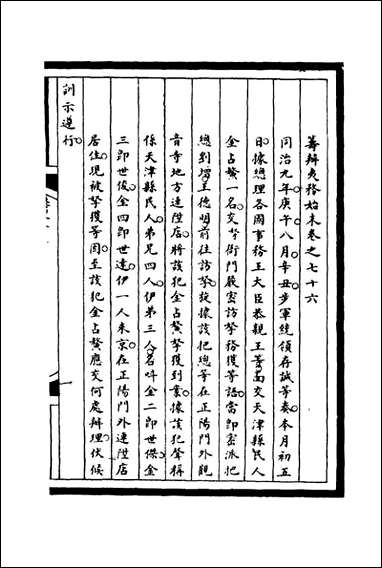 籌辦夷務始末卷之七十六
同治九年庚午八月辛丑步軍統領存誠等奏本月初五
日據總理各國事務王大臣恭親王等函交天津縣民人
金占鰲一名交拏衙門嚴密訪拏務獲等語當即密派把
總劉堦王德明前往訪拏旋據該把總等在正陽門外觀
音寺地方連陞店將該犯金占鰲拏獲到案據該犯聲稱
係天津縣民人弟兄四人伊弟三人名叫金二郎世傑金
三郎世俊金四郎世達伊一人來京在正陽門外連陞店
居住現被拏獲等因至該犯金占鰲應交何處辦理伏候
訓示遵行
一